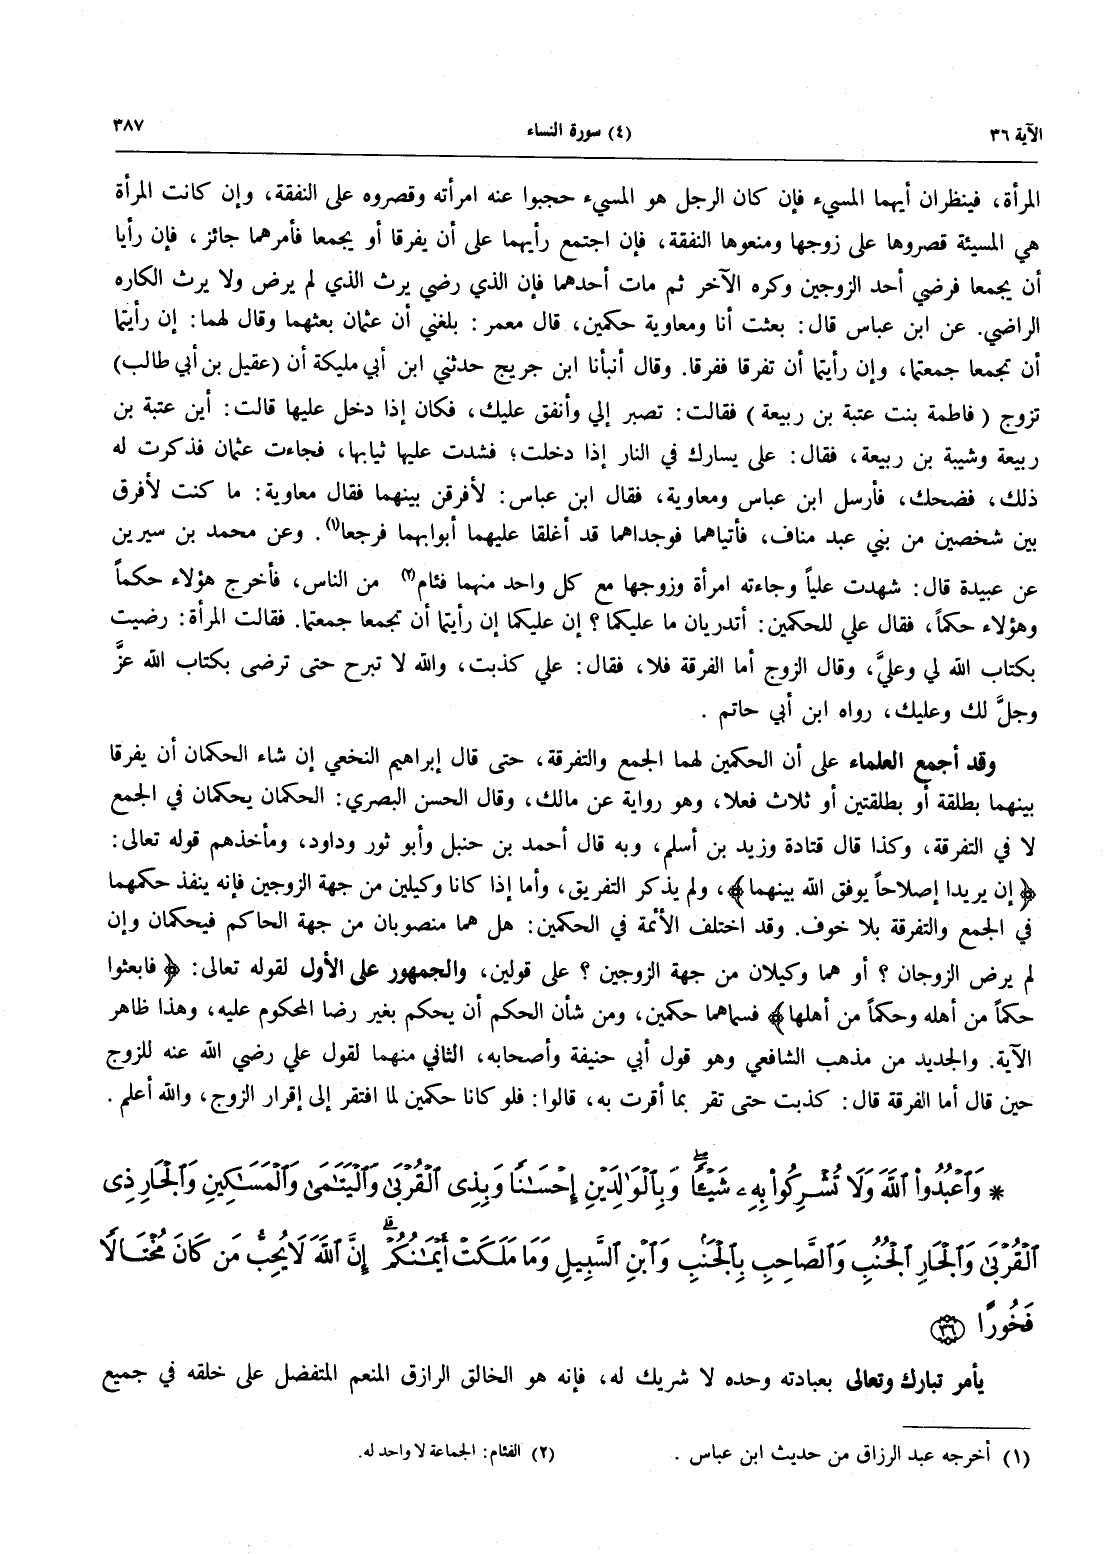 الآية ٣٦ (٤) سورة النساء ٣٨٧
المرأة، فينظران أيهما المسيء فإن كان الرجل هو المسيء حجبوا عنه امرأته وقصروه على النفقة، وإن كانت المرأة
هي المسيئة قصروها على زوجها ومنعوها النفقة، فإن اجتمع رأيهما على أن يفرقا أو يجمعا فأمرهما جائز، فإن رأيا
أن يجمعا فرضي أحد الزوجين وكره الآخر ثم مات أحدهما فإن الذي رضي يرث الذي لم يرض ولا يرث الكاره
الراضي. عن ابن عباس قال: بعثت أنا ومعاوية حكمين، قال معمر: بلغني أن عثمان بعثهما وقال لهما: إن رأيتما
أن تجمعا جمعتما، وإن رأيتما أن تفرقا ففرقا. وقال أنبأنا ابن جريج حدثني ابن أبي مليكة أن (عقيل بن أبي طالب)
تزوج (فاطمة بنت عتبة بن ربيعة) فقالت: تصبر إلي وأنفق عليك، فكان إذا دخل عليها قالت: أين عتبة بن
ربيعة وشيبة بن ربيعة، فقال: على يسارك في النار إذا دخلت؛ فشدت عليها ثيابها، فجاءت عثمان فذكرت له
ذلك، فضحك، فأرسل ابن عباس ومعاوية، فقال ابن عباس: لأفرقن بينهما فقال معاوية: ما كنت لأفرق
بين شخصين من بني عبد مناف، فأتياهما فوجداهما قد أغلقا عليهما أبوابهما فرجعا(١). وعن محمد بن سيرين
عن عبيدة قال: شهدت علياً وجاءته امرأة وزوجها مع كل واحد منهما فئام(٢) من الناس، فأخرج هؤلاء حكماً
وهؤلاء حكماً، فقال علي للحكمين: أتدريان ما عليكما؟ إن عليكما إن رأيتما أن تجمعا جمعتما. فقالت المرأة: رضيت
بكتاب الله لي وعليَّ، وقال الزوج أما الفرقة فلا، فقال: علي كذبت، والله لا تبرح حتى ترضى بكتاب الله عزَّ
وجلَّ لك وعليك، رواه ابن أبي حاتم.
وقد أجمع العلماء على أن الحكمين لهما الجمع والتفرقة، حتى قال إبراهيم النخعي إن شاء الحكمان أن يفرقا
بينهما بطلقة أو بطلقتين أو ثلاث فعلا، وهو رواية عن مالك، وقال الحسن البصري: الحكمان يحكمان في الجمع
لا في التفرقة، وكذا قال قتادة وزيد بن أسلم، وبه قال أحمد بن حنبل وأبو ثور وداود، ومأخذهم قوله تعالى:
﴿إن يريدا إصلاحاً يوفق الله بينهما﴾، ولم يذكر التفريق، وأما إذا كانا وكيلين من جهة الزوجين فإنه ينفذ حكمهما
في الجمع والتفرقة بلا خوف. وقد اختلف الأئمة في الحكمين: هل هما منصوبان من جهة الحاكم فيحكمان وإن
لم يرض الزوجان؟ أو هما وكيلان من جهة الزوجين؟ على قولين، والجمهور على الأول لقوله تعالى: ﴿فابعثوا
حكماً من أهله وحكماً من أهلها﴾ فسماهما حكمين، ومن شأن الحكم أن يحكم بغير رضا المحكوم عليه، وهذا ظاهر
الآية. والجديد من مذهب الشافعي وهو قول أبي حنيفة وأصحابه، الثاني منهما لقول علي رضي الله عنه للزوج
حين قال أما الفرقة قال: كذبت حتى تقر بما أقرت به، قالوا: فلو كانا حكمين لما افتقر إلى إقرار الزوج، والله أعلم.
* وَٱعْبُدُوا۟ ٱللَّهَ وَلَا تُشْرِكُوا۟ بِهِۦ شَيْـًٔا ۖ وَبِٱلْوَٰلِدَيْنِ إِحْسَـٰنًا وَبِذِى ٱلْقُرْبَىٰ وَٱلْيَتَـٰمَىٰ وَٱلْمَسَـٰكِينِ وَٱلْجَارِ ذِى
ٱلْقُرْبَىٰ وَٱلْجَارِ ٱلْجُنُبِ وَٱلصَّاحِبِ بِٱلْجَنۢبِ وَٱبْنِ ٱلسَّبِيلِ وَمَا مَلَكَتْ أَيْمَـٰنُكُمْ ۗ إِنَّ ٱللَّهَ لَا يُحِبُّ مَن كَانَ مُخْتَالًا
فَخُورًا ٣٦
يأمر تبارك وتعالى بعبادته وحده لا شريك له، فإنه هو الخالق الرازق المنعم المتفضل على خلقه في جميع
(١) أخرجه عبد الرزاق من حديث ابن عباس. (٢) الفئام: الجماعة لا واحد له.